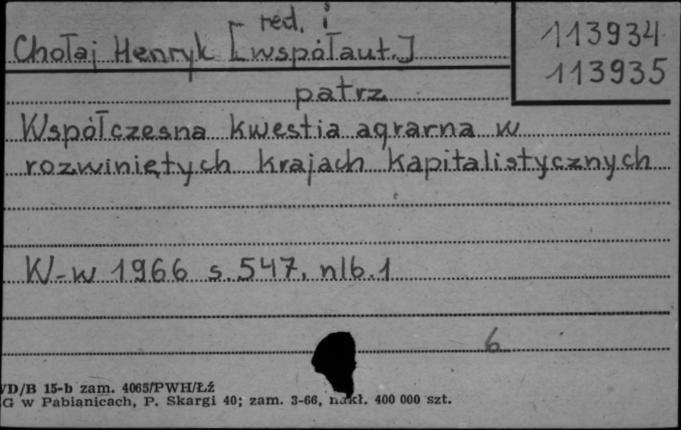 red. i
Chołaj Henryk [współaut.]
113934
113935
patrz
Współczesna kwestia agrarna w
rozwiniętych krajach kapitalistycznych
W-w 1966 s. 547, nlb. 1
6
D/B 15-b zam. 4065/PWH/Łż
G w Pabianicach, P. Skargi 40; zam. 3-66, nakł. 400 000 szt.